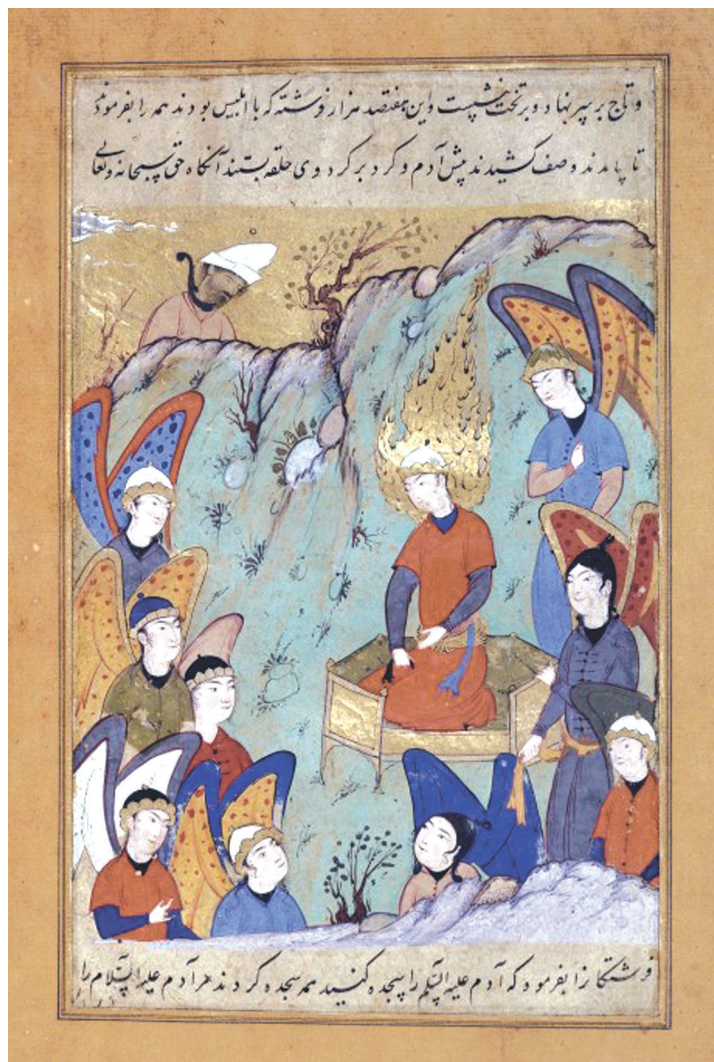 و تاج بر سر نهاد و بر تخت نشست و این هفتصد هزار فرشته که با ابلیس بودند همه را بفرمود
تا بیامدند و صف کشیدند پیش آدم و گرد بر گرد وی حلقه بستند آنگاه حق سبحانه و تعالی
فرشتگانرا بفرمود که آدم علیه السلام را سجده کنید همه سجده کردند مر آدم علیه السلام را